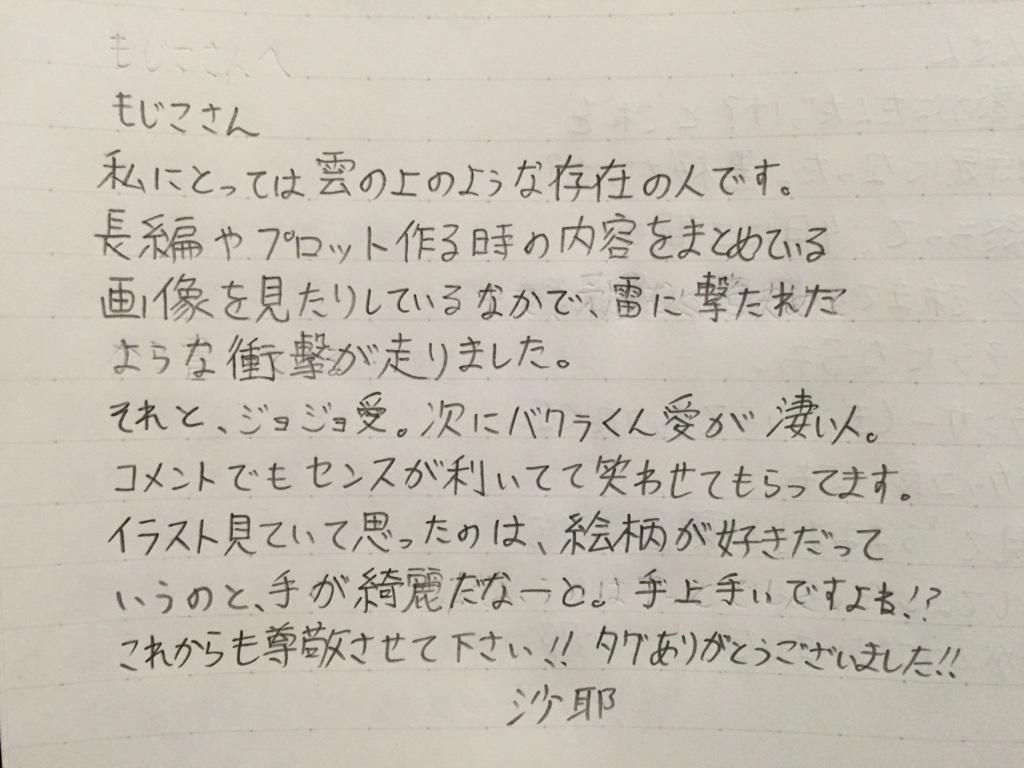 もじこさん
私にとっては雲の上のような存在の人です。
長編やプロット作る時の内容をまとめている
画像を見たりしているなかで、雷に撃たれた
ような衝撃が走りました。
それと、ジョジョ愛。次にバクラくん愛が凄い人。
コメントでもセンスが利いてて笑わせてもらってます。
イラスト見ていて思ったのは、絵柄が好きだって
いうのと、手が綺麗だなーと。手上手いですよね!?
これからも尊敬させて下さい!! タグありがとうございました!!
沙耶